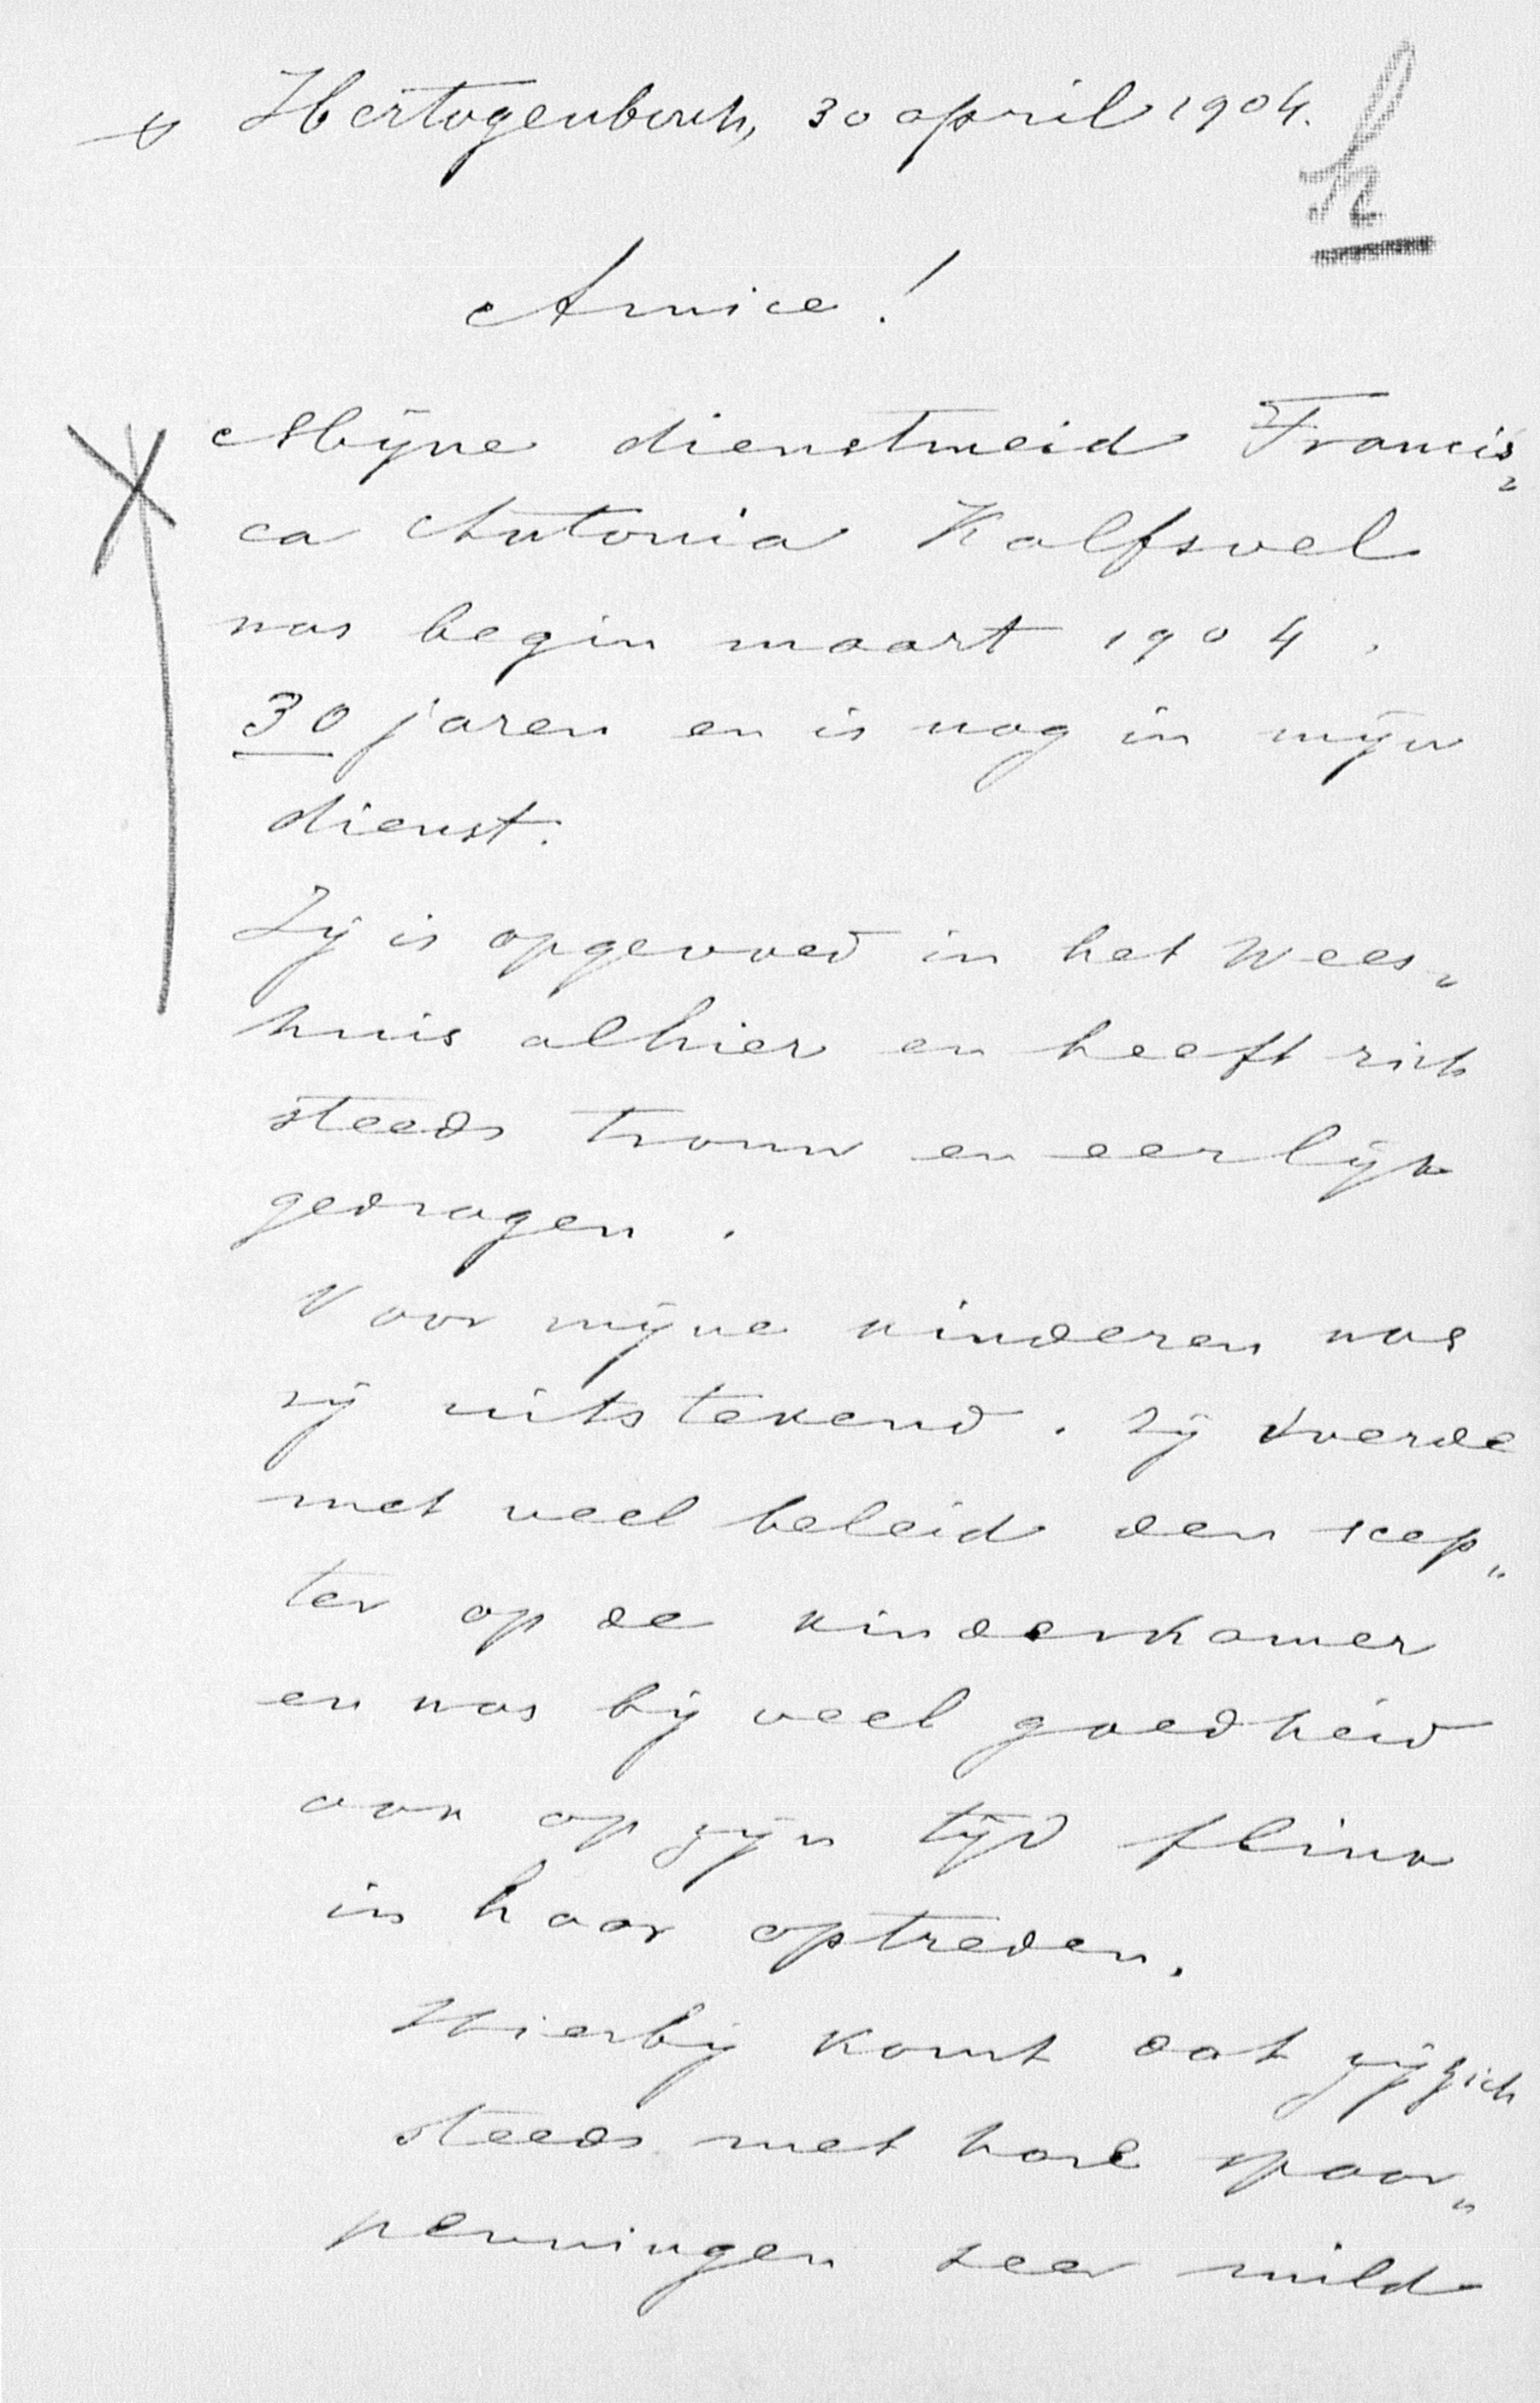 s Hertogenbosch, 30 april 1904.
h
Amice!
Mijne dienstmeid Francis„
ca Antonia Kalfsvel
was begin maart 1904.
30 jaren en is nog in mijn
dienst.
Zij is opgevoed in het Wees„
huis alhier en heeft zich
steeds trouw en eerlijk
gedragen.
Voor mijne kinderen was
zij uitstekend. Zij voerde
met veel beleid den scep„
ter op de kinderkamer
en was bij veel goedheid
ook op zijn tijd flink
in haar optreden.
Hierbij komt dat zij zich
steeds met hare spaar„
penningen zeer mild